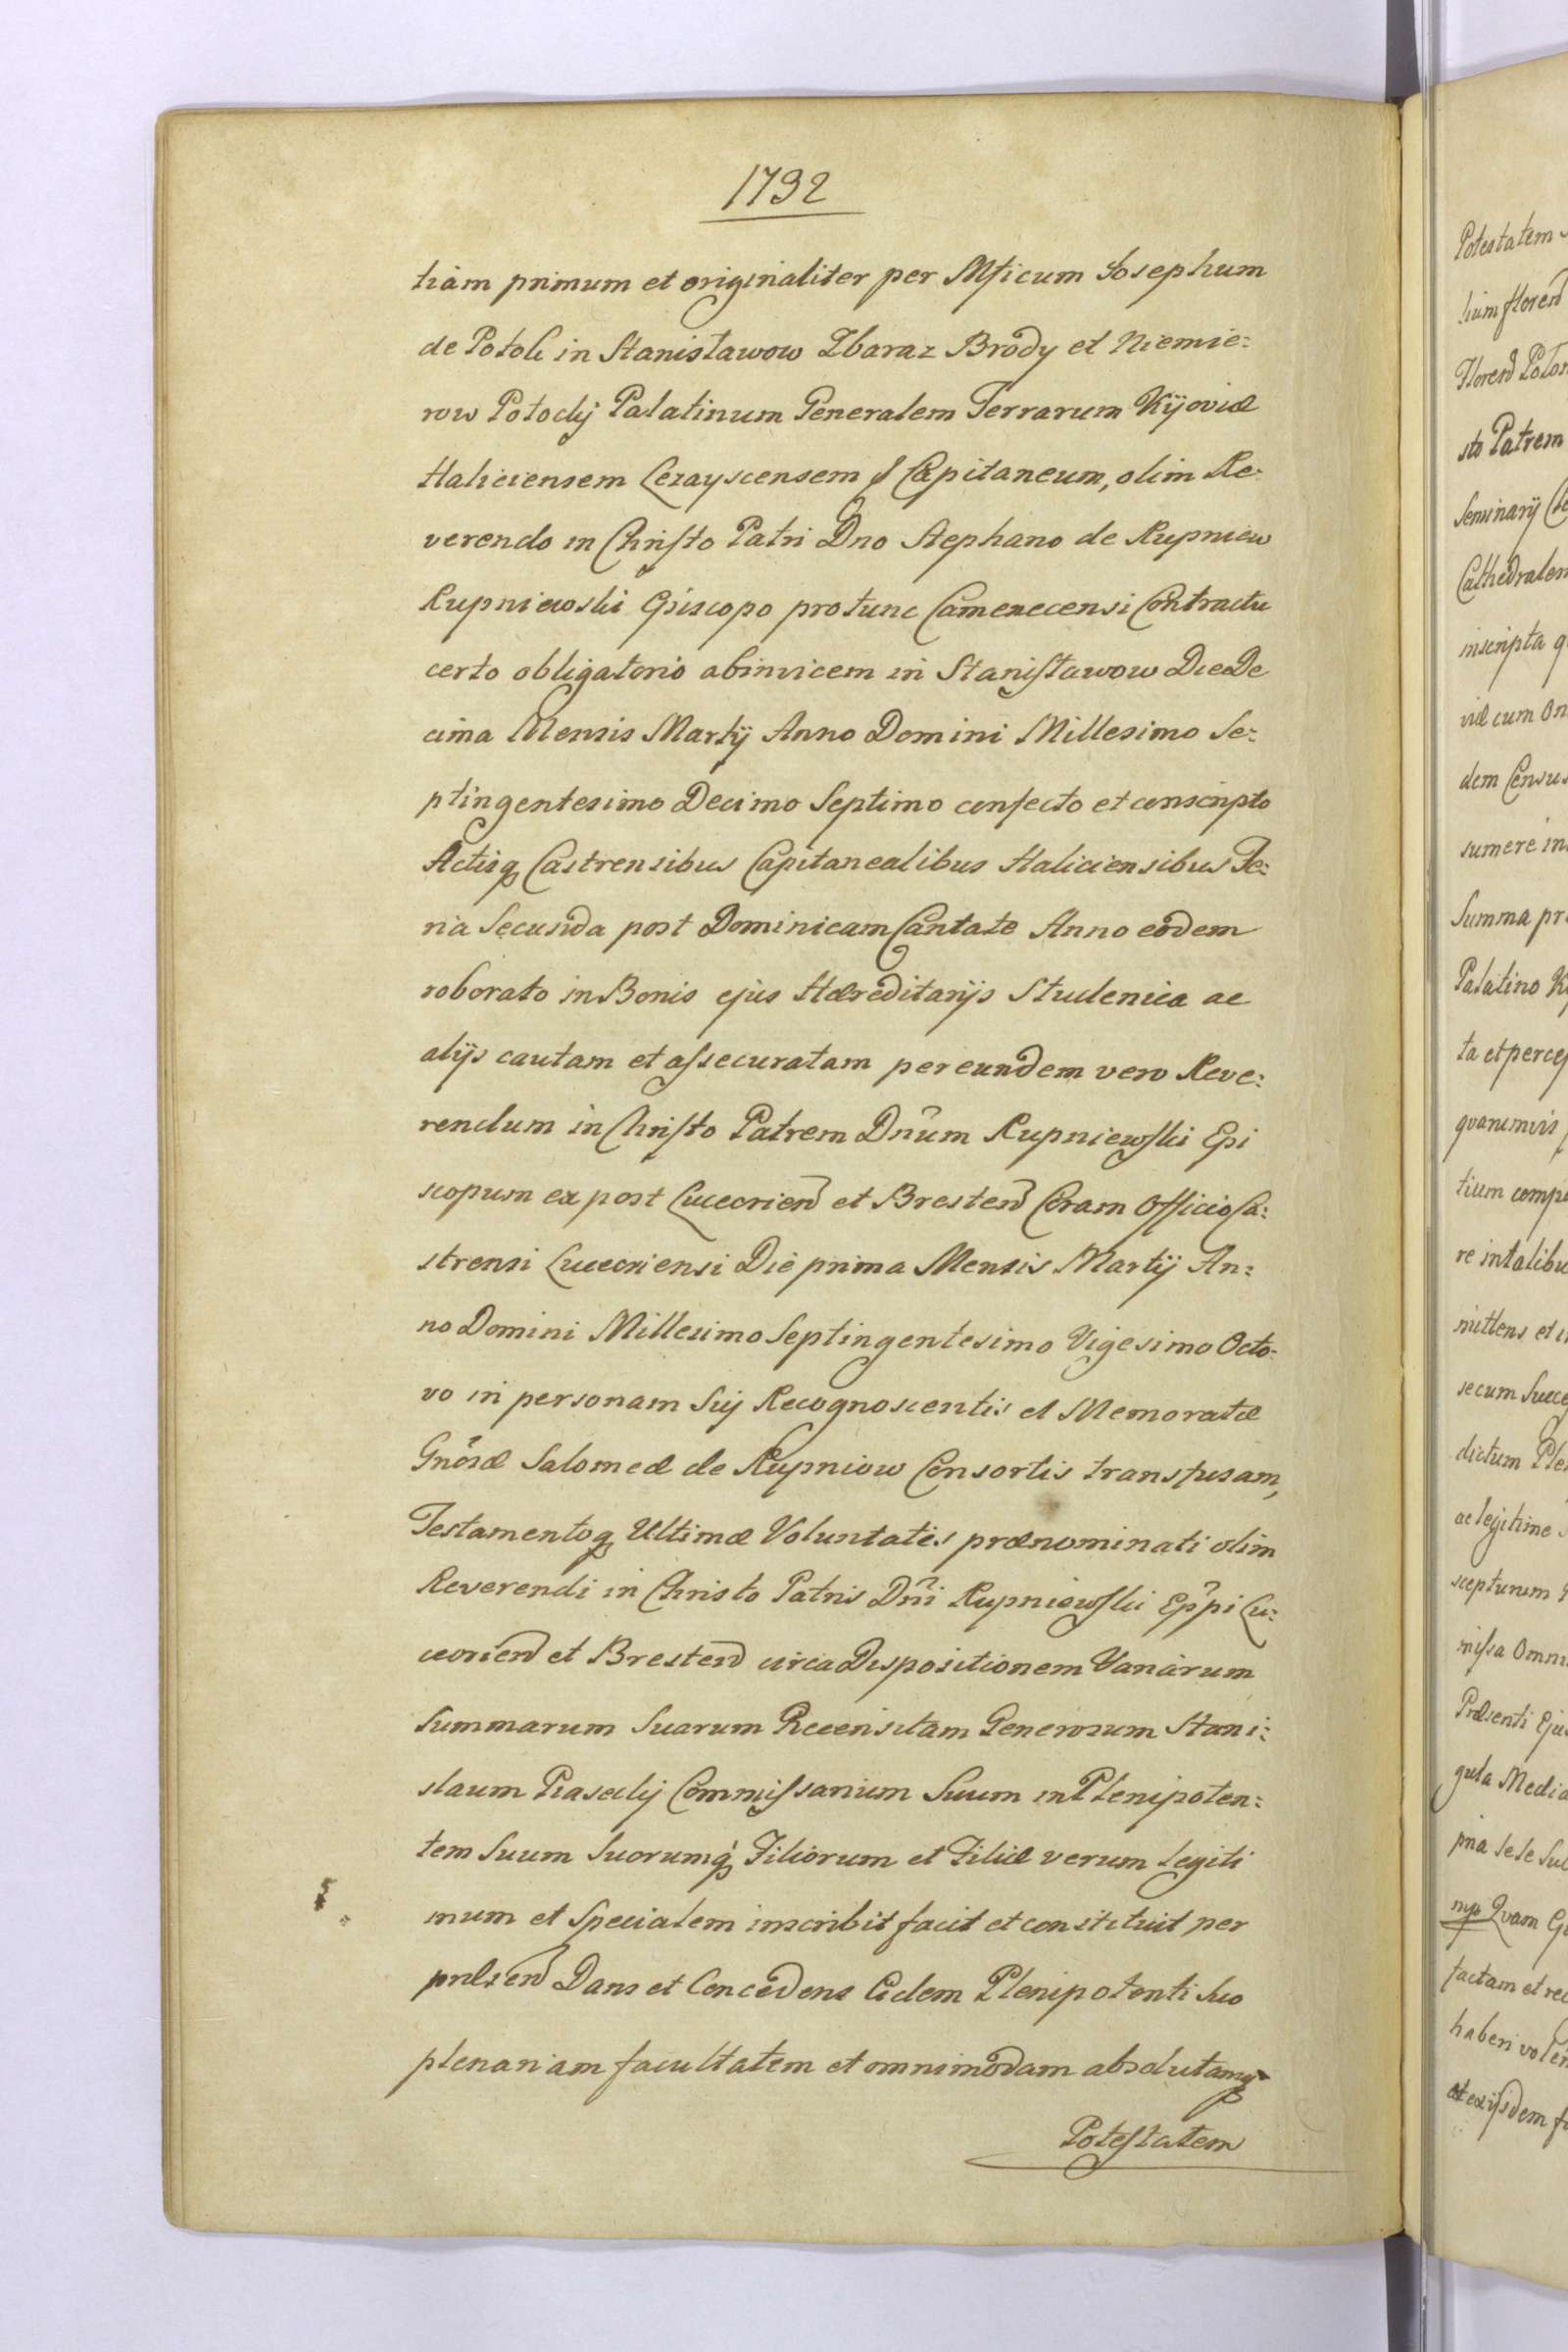 1792
tiam primum et originaliter per Mficum Josephum
de Potok in Stanisławow Zbaraz Brody et Niemie:
row Potocky Palatinum Generalem Terrarum Kijoviæ
Haliciensem Lezayscensem Capitaneum, olim Re:
verendo in Christo Patri Dno Stephano de Rupniew
Rupniewski Episcopo protunc Camenecensi Contractu
certo obligatorio abinvicem in Stanisławow Die De
cima Mensis Martij Anno Domini Millesimo Se:
ptingentesimo Decimo Septimo confecto et conscripto
Actisq Castrensibus Capitanealibus Haliciensibus Fe:
ria Secunda post Dominicam Cantate Anno eodem
roborato in Bonis ejus Hæreditarijs Studenica ac
alijs cautam et assecuratam per eundem vero Reve:
rendum in Christo Patrem Dnum Rupniewski Epi
scopum ex post Luceorien et Bresten Coram Officio Ca:
strensi Luceoriensi Die prima Mensis Martij An:
no Domini Millesimo Septingentesimo Vigesimo Octo:
vo in personam Sui Recognoscentis et Memoratæ
Gnosæ Salomeæ de Rupniow Consortis transfusam,
Testamentoq Ultimæ Voluntatis prænominati olim
Reverendi in Christo Patris Dni Rupniewski Eppi Lu:
ceorien et Bresten circa Dispositionem Variarum
Summarum Suarum Recensitam Generosum Stani:
slaum Commissarium Suum in Plenipoten:
tem Suum Suorumq Filiorum et Filiæ verum legiti
mum et Specialem inscribit facit et constituit per
Dans et Concedens Eidem Plenipotenti Suo
plenariam facultatem et omnimodam absolutamq
Potestatem
Potestatem
lium floren
Floren
sto Patrem
Seminarij
Cathedralem
inscripta
cum
dem Census
sumere
Summa
Palatino
ta et
quanimis
tium
re in talibu
mittens et
secum
dictum
ac legitime
missa
Præsenti
gula
sese
Quam
factam et
haberi